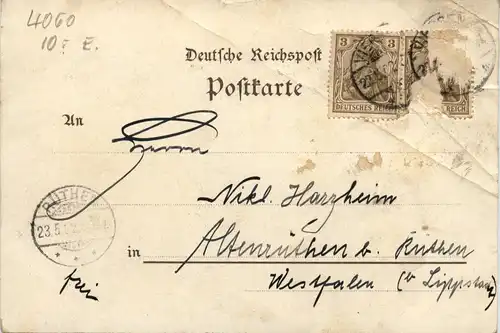 4060
10.- E.
Deutsche Reichspost
Postkarte
3
DEUTSCHES REICH
REICH
An
Herrn
Nikl. Harzheim
RÜTHEN
23.5.
in Altenrüthen b. Rüthen
Westfalen (b Lippstadt)
frei